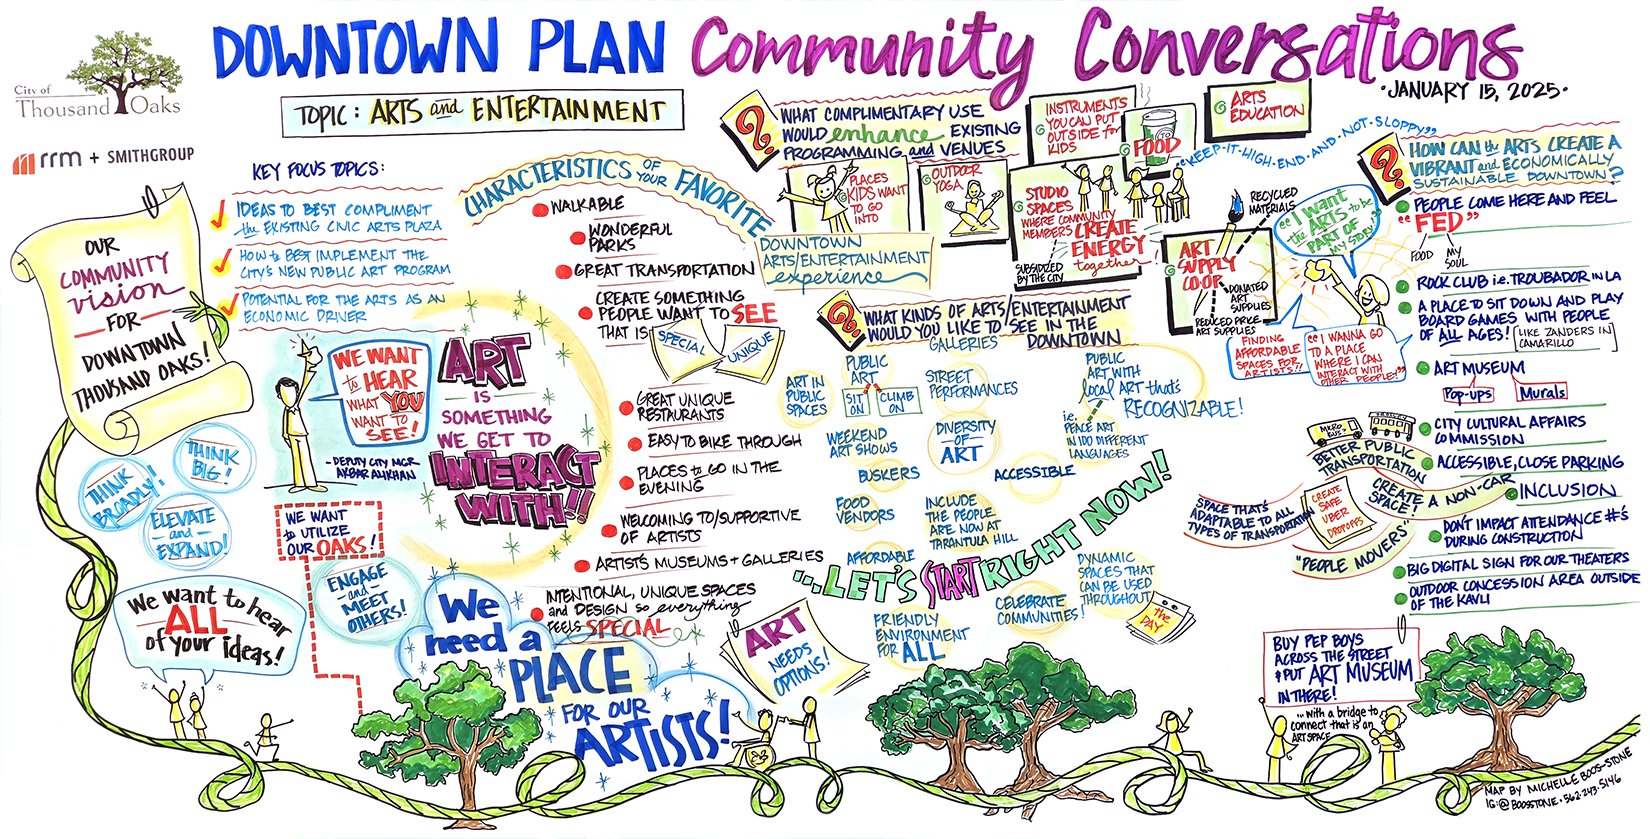 DOWNTOWN PLAN Community Conversations
·JANUARY 15, 2025·
City of
Thousand Oaks
rrm + SMITHGROUP
TOPIC: ARTS and ENTERTAINMENT
OUR
COMMUNITY
vision
FOR
DOWNTOWN
THOUSAND OAKS!
KEY FOCUS TOPICS:
IDEAS TO BEST COMPLIMENT
the EXISTING CIVIC ARTS PLAZA
HOW to BEST IMPLEMENT THE
CITY'S NEW PUBLIC ART PROGRAM
POTENTIAL FOR THE ARTS AS AN
ECONOMIC DRIVER
THINK
BROADLY!
THINK
BIG!
ELEVATE
and
EXPAND!
We want to hear
ALL
of your ideas!
WE WANT
to HEAR
WHAT YOU
WANT TO
SEE!
- DEPUTY CITY MGR.
AKBAR ALIKHAN
WE WANT
to UTILIZE
OUR OAKS!
ENGAGE
and
MEET
OTHERS!
ART
IS
SOMETHING
WE GET TO
INTERACT
WITH!!
We
need a
PLACE
FOR OUR
ARTISTS!
CHARACTERISTICS OF YOUR FAVORITE
DOWNTOWN
ARTS/ENTERTAINMENT
experience
WALKABLE
WONDERFUL
PARKS
GREAT TRANSPORTATION
CREATE SOMETHING
PEOPLE WANT TO SEE
THAT IS
SPECIAL
UNIQUE
GREAT UNIQUE
RESTAURANTS
EASY TO BIKE THROUGH
PLACES to GO IN THE
EVENING
WELCOMING TO/SUPPORTIVE
OF ARTISTS
ARTISTS MUSEUMS + GALLERIES
INTENTIONAL, UNIQUE SPACES
and DESIGN so everything
FEELS SPECIAL
ART
NEEDS
OPTIONS!
?
WHAT COMPLIMENTARY USE
WOULD enhance EXISTING
PROGRAMMING and VENUES
PLACES
KIDS WANT
TO GO
INTO
OUTDOOR
YOGA
INSTRUMENTS
YOU CAN PUT
OUTSIDE for
KIDS
FOOD
ARTS
EDUCATION
"KEEP-IT-HIGH-END-AND-NOT-SLOPPY"
STUDIO
SPACES
WHERE COMMUNITY
MEMBERS CREATE
ENERGY
together
SUBSIDIZED
BY THE CITY
ART
SUPPLY
CO-OP
RECYCLED
MATERIALS
DONATED
ART
SUPPLIES
REDUCED PRICE
ART SUPPLIES
?
WHAT KINDS OF ARTS/ENTERTAINMENT
WOULD YOU LIKE TO SEE IN THE
DOWNTOWN
GALLERIES
PUBLIC
ART
SIT
ON
CLIMB
ON
ART IN
PUBLIC
SPACES
STREET
PERFORMANCES
PUBLIC
ART WITH
local ART that's
RECOGNIZABLE!
i.e.
PEACE ART
IN 100 DIFFERENT
LANGUAGES
WEEKEND
ART SHOWS
DIVERSITY
OF
ART
BUSKERS
ACCESSIBLE
FOOD
VENDORS
INCLUDE
THE PEOPLE
ARE NOW AT
TARANTULA HILL
AFFORDABLE
"...LET'S START RIGHT NOW!
FRIENDLY
ENVIRONMENT
FOR
ALL
CELEBRATE
COMMUNITIES!
DYNAMIC
SPACES THAT
CAN BE USED
THROUGHOUT
the
DAY
?
HOW CAN the ARTS CREATE A
VIBRANT and ECONOMICALLY
SUSTAINABLE DOWNTOWN?
"I want
the ARTS to be
PART OF
MY STORY"
FINDING
AFFORDABLE
SPACES FOR
ARTISTS!!
"I WANNA GO
TO A PLACE
WHERE I CAN
INTERACT WITH
OTHER PEOPLE!"
PEOPLE COME HERE AND FEEL
"FED"
FOOD
MY
SOUL
ROCK CLUB i.e. TROUBADOR IN LA
A PLACE TO SIT DOWN AND PLAY
BOARD GAMES WITH PEOPLE
OF ALL AGES!
LIKE ZANDERS IN
CAMARILLO
ART MUSEUM
Pop-ups
Murals
CITY CULTURAL AFFAIRS
COMMISSION
ACCESSIBLE, CLOSE PARKING
INCLUSION
DON'T IMPACT ATTENDANCE #'S
DURING CONSTRUCTION
BIG DIGITAL SIGN FOR OUR THEATERS
OUTDOOR CONCESSION AREA OUTSIDE
OF THE KAVLI
MICRO
BUS?
TROLLEY
BETTER PUBLIC
TRANSPORTATION
SPACE THAT'S
ADAPTABLE TO ALL
TYPES OF TRANSPORTATION
CREATE
SAFE
UBER
DROPOFFS
CREATE A NON-CAR
SPACE!
"PEOPLE MOVERS"
BUY PEP BOYS
ACROSS THE STREET
& PUT ART MUSEUM
IN THERE!
...with a bridge to
connect that is an
ART SPACE
MAP BY MICHELLE BOOS-STONE
IG: @BOOSSTONE · 562·243·5146